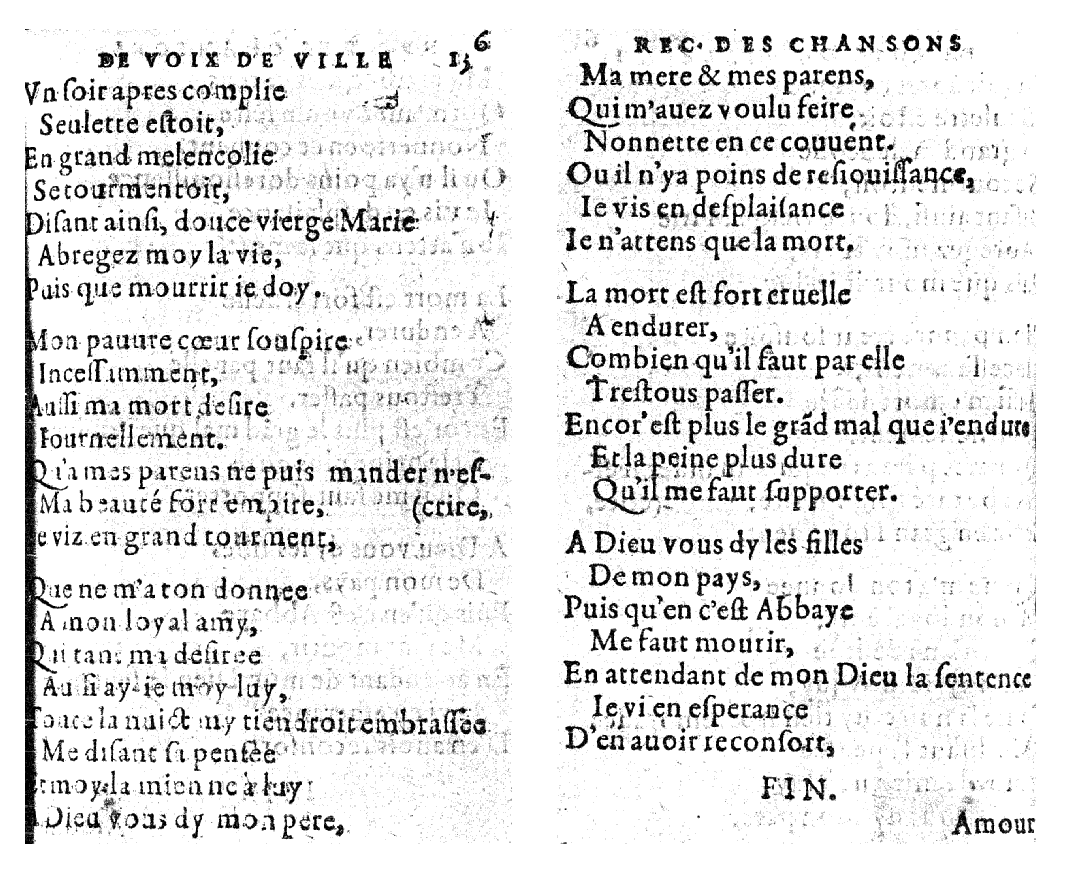 DE VOIX DE VILLE 13 6
Vn ſoir apres complie
Seulette eſtoit,
En grand melencolie
Se tourmentoit,
Diſant ainſi, douce vierge Marie
Abregez moy la vie,
Puis que mourrir ie doy.
Mon pauure cœur ſouſpire
Inceſſamment,
Auſſi ma mort deſire
Iournellement.
Qu'a mes parens ne puis mander n'eſ-
Ma beauté fort empire, (crire,
Ie viz en grand tourment,
Que ne m'a ton donnee
A mon loyal amy,
Qui tant m'a deſiree
Auſſi ay-ie moy luy,
Toute la nuict my tiendroit embraſſée
Me diſant ſa penſée
Et moy la mienne à luy
A Dieu vous dy mon pere,
REC. DES CHANSONS
Ma mere & mes parens,
Qui m'auez voulu feire
Nonnette en ce couuent.
Ou il n'ya poins de reſiouiſſance,
Ie vis en deſplaiſance
Ie n'attens que la mort.
La mort eſt fort cruelle
A endurer,
Combien qu'il faut par elle
Treſtous paſſer.
Encor' eſt plus le grãd mal que i'endure
Et la peine plus dure
Qu'il me faut ſupporter.
A Dieu vous dy les filles
De mon pays,
Puis qu'en c'eſt Abbaye
Me faut mourir,
En attendant de mon Dieu la ſentence
Ie vi en eſperance
D'en auoir reconfort,
FIN.
Amour